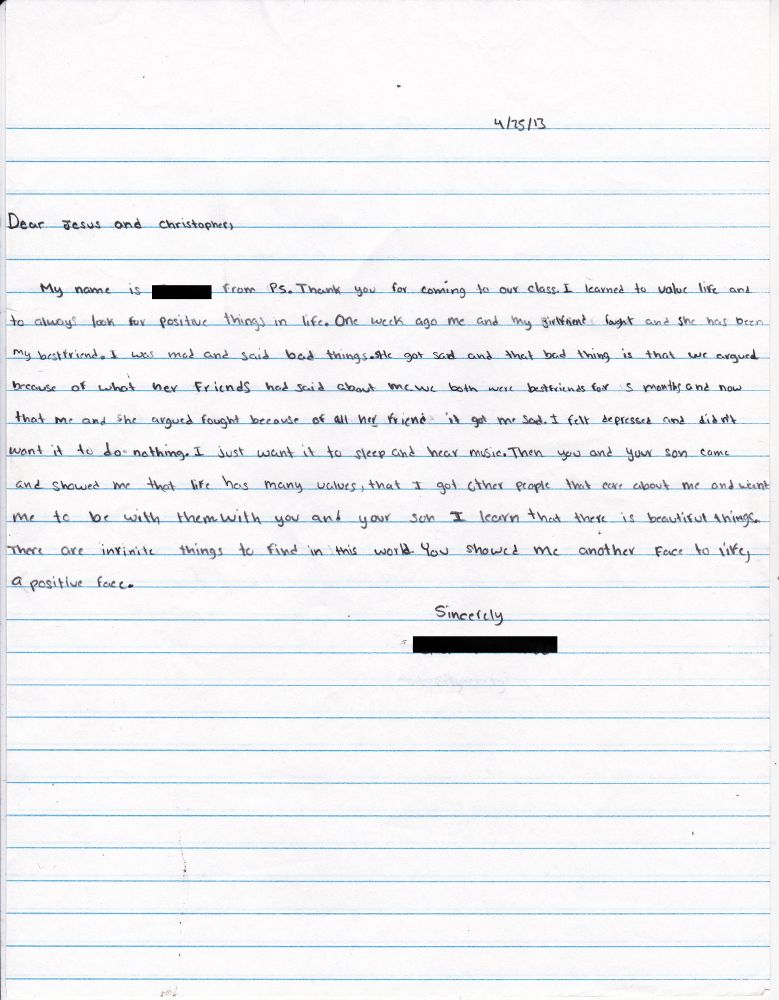 4/25/13
Dear Jesus and Christopher,
My name is from Ps. Thank you for coming to our class. I learned to value life and
to always look for positive things in life. One week ago me and my girlfriend fought and she has been
my bestfriend. I was mad and said bad things. She got sad and that bad thing is that we argued
because of what her friends had said about me. we both were bestfriends for 5 months and now
that me and she argued fought because of all her friend it got me sad. I felt depressed and didn't
want it to do nothing. I just want it to sleep and hear music. Then you and your son came
and showed me that life has many values, that I got other people that care about me and want
me to be with them with you and your son I learn that there is beautiful things.
There are infinite things to find in this world. You showed me another face to life,
a positive face.
Sincerely